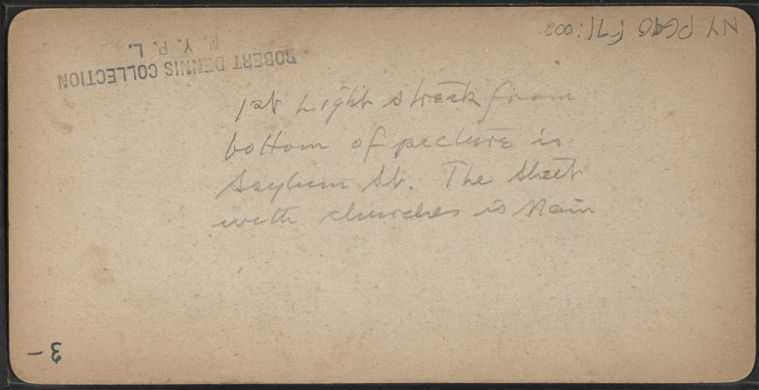 NY PG90 F71:002
ROBERT DENNIS COLLECTION
N. Y. P. L.
1st Light streak from
bottom of picture is
Asylum St. The street
with churches is Main
3-